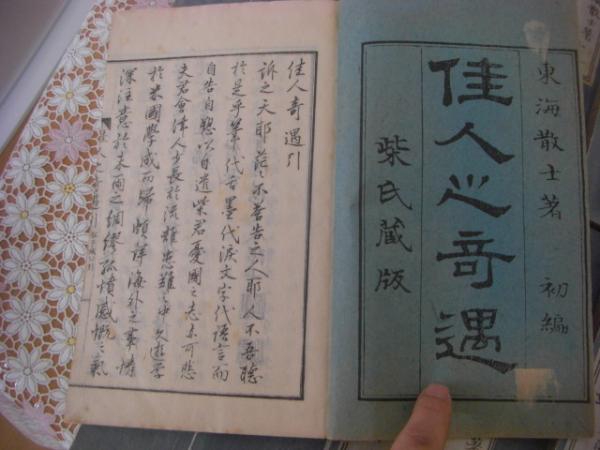 東海散士著 初編
佳人之奇遇
柴氏藏版
佳人奇遇引
訴之天耶茫々不荅告之人耶人不吾聴
於是乎筆代舌墨代涙文字代語言而
自告自愬以自遣柴君憂國之志亦可悲
夫君會津人少長於流離患難之中久遊学
於米國學成而歸頗詳海外之事情
深注意於未雨之綢繆孤憤感慨之氣